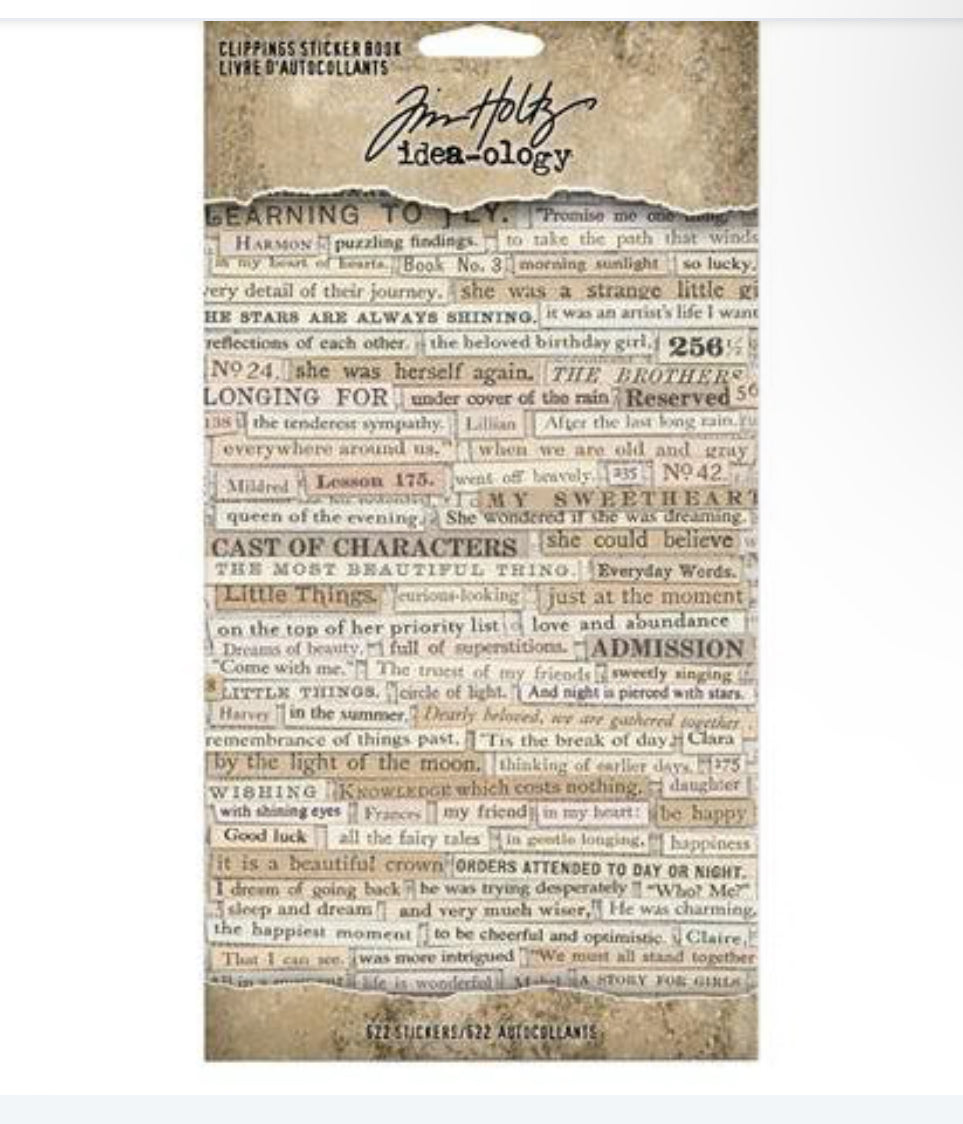 CLIPPINGS STICKER BOOK
LIVRE D'AUTOCOLLANTS
Tim Holtz
idea-ology
LEARNING TO FLY. "Promise me one thing,"
HARMON puzzling findings. to take the path that winds
in my heart of hearts. Book No. 3 morning sunlight so lucky.
very detail of their journey. she was a strange little gi
HE STARS ARE ALWAYS SHINING. it was an artist's life I want
reflections of each other. the beloved birthday girl, 256½
Nº 24. she was herself again. THE BROTHERS
LONGING FOR under cover of the rain Reserved 56
138 the tenderest sympathy. Lillian After the last long rain.
everywhere around us." when we are old and gray
Mildred Lesson 175. went off bravely. 235 Nº 42.
MY SWEETHEART
queen of the evening, She wondered if she was dreaming.
CAST OF CHARACTERS she could believe
THE MOST BEAUTIFUL THING. Everyday Words.
Little Things. curious-looking just at the moment
on the top of her priority list love and abundance
Dreams of beauty. full of superstitions. ADMISSION
"Come with me." The truest of my friends sweetly singing
8 LITTLE THINGS. circle of light. And night is pierced with stars.
Harvey in the summer. Dearly beloved, we are gathered together
remembrance of things past. 'Tis the break of day. Clara
by the light of the moon. thinking of earlier days. 175
WISHING KNOWLEDGE which costs nothing. daughter
with shining eyes Frances my friend in my heart: be happy
Good luck all the fairy tales in gentle longing, happiness
it is a beautiful crown ORDERS ATTENDED TO DAY OR NIGHT.
I dream of going back he was trying desperately "Who? Me?"
sleep and dream and very much wiser, He was charming,
the happiest moment to be cheerful and optimistic. Claire,
That I can see. was more intrigued "We must all stand together
life is wonderful Mabel A STORY FOR GIRLS
622 STICKERS/622 AUTOCOLLANTS